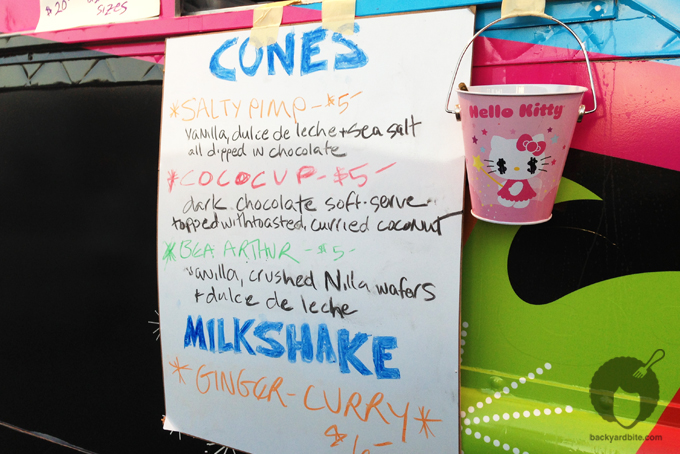 $20
SIZES
CONES
*SALTY PIMP - $5-
vanilla, dulce de leche + sea salt
all dipped in chocolate
*COCOCUP - $5-
dark chocolate soft-serve
topped with toasted, curried coconut
*BEA ARTHUR - $5-
vanilla, crushed Nilla wafers
+ dulce de leche
MILKSHAKE
*GINGER-CURRY*
$6-
Hello Kitty
backyardbite.com